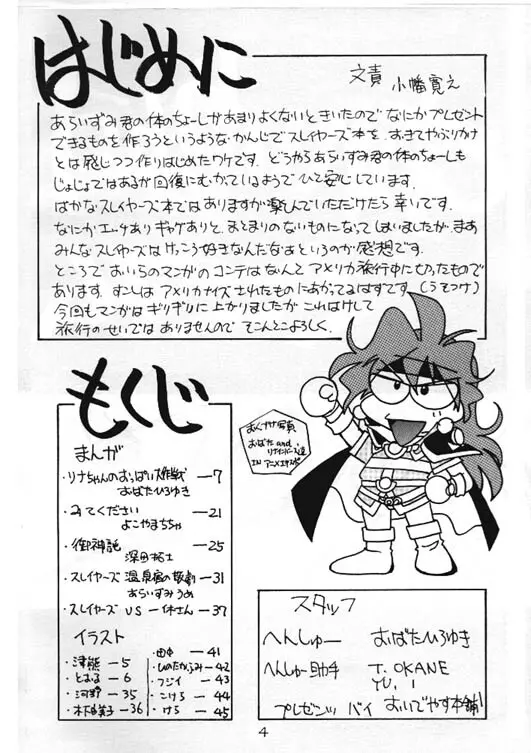 はじめに
文責 小幡寛之
あらいずみ君の体のちょーしがあまりよくないときいたのでなにかプレゼント
できるものを作ろうというような、かんじでスレイヤーズ本を、おきてやぶりかナ
とは感じつつ作りはじめたワケです。どうやらあらいずみ君の体のちょーしも
じょじょではあるが回復にむかっているようでひと安心しています。
ばかなスレイヤーズ本ではありますが楽しんでいただけたら幸いです。
なにかエッチありギャグありと、まとまりのないものになってしまいましたが、まあ
みんなスレイヤーズはけっこう好きなんだなあというのが感想です。
ところでおいらのマンガのコンテはなんとアメリカ旅行中に切ったもので
あります。すこしはアメリカナイズされたものにあがってるはずです。(うそつけ)
今回もマンガはギリギリに上がりましたがこれはけして
旅行のせいではありませんのでそこんとこよろしく。
もくじ
まんが
・リナちゃんのおっぱい大作戦 —7
おばたひろゆき
・みてください —21
よこやまちちゃ
・御神説 —25
深田拓士
・スレイヤーズ 温泉宿の惨劇 —31
あらいずみうめ
・スレイヤーズ VS 一休さん —37
イラスト
・津熊 —5
・とおる —6
・河野 —35
・木下由美子 —36
・田中 —41
・ひのたかふみ —42
・フジイ —43
・こけろ —44
・けろ —45
おくづけ写真
おばた and
IN アニメエキスポ
スタッフ
へんしゅー おばたひろゆき
へんしゅー助手 T. OKANE
プレゼンツ バイ おいでやす本舗!
4